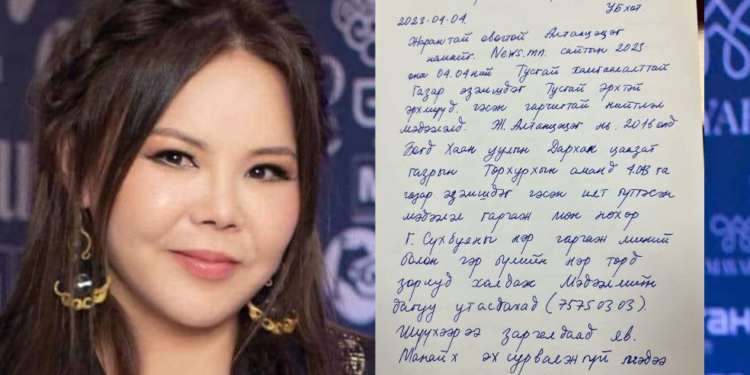 УБ хот.
2023.04.04.
Жарантай овогтой Алтанцэцэг
намайг News.mn сайтын 2023
оны 04.04ний Тусгай хамгаалалттай
Газар эзэмшдэг Тусгай эрхтэй
эрхмүүд гэсэн гарчигтай нийтлэл
мэдээлэлд. Ж.Алтанцэцэг нь 2016 онд
Богд Хаан уулын Дархан цаазат
газрын Төрхурхын аманд 4.043 га
газар эзэмшдэг гэсэн илт гүтгэсэн
мэдээлэл гаргаж мөн нөхөр
Г. Сүхбуяны нэр гаргаж миний
болон гэр бүлийн нэр төрд
зориуд халдаж Мэдээллийн
дагуу утасдахад (7575 03 03).
Шүүхээрээ заргалдаад яв.
Манайх эх сурвалжгүй мэдээ